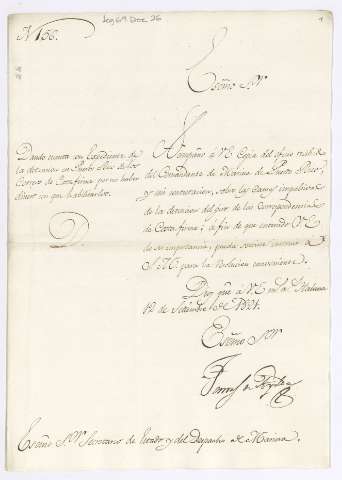 Leg 69 Doc 26
1
N 156.
Exmo Sor.
Dando cuenta con Expediente de
la detencion en Puerto Rico de los
Correos de Costa firme por no haber
dinero con que habilitarlos.
Acompaño á V.E. Copia del oficio recibido
del Comandante de Marina de Puerto Rico,
y mi contestacion, sobre las causas impulsivas
de la detencion del giro de las Correspondencias
de Costa firme; á fin de que enterado V.E.
de su importancia, pueda servirse
S.M. para la Resolucion conveniente.
Dios gue. á V.E. ms. as. Habana
12 de Setiembre de
Exmo Sor.
Exmo Sor. Secretario de Estado y del Despacho de Marina.